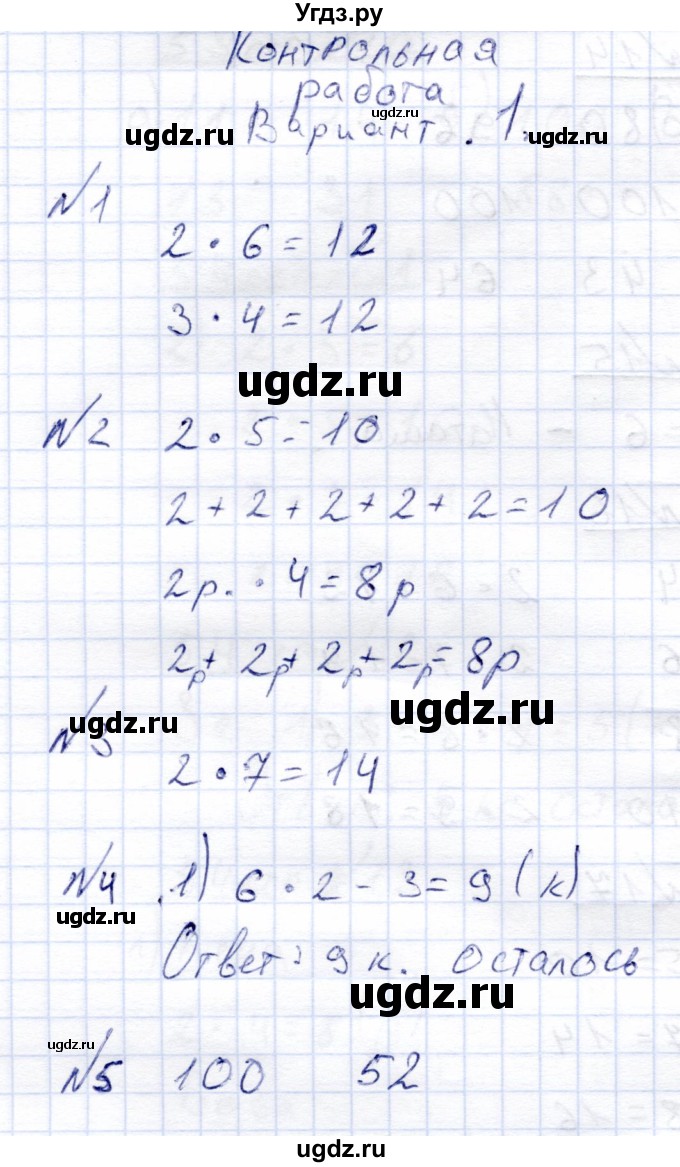 Угдз.ру
Контрольная
работа
ugdz.ru
Вариант 1.
ugdz.ru
ugdz.ru
№1
2 · 6 = 12
3 · 4 = 12
ugdz.ru
№2 2 · 5 = 10
2 + 2 + 2 + 2 + 2 = 10
2р. · 4 = 8р
2р + 2р + 2р + 2р = 8р
ugdz.ru
ugdz.ru
№3
2 · 7 = 14
№4 1) 6 · 2 - 3 = 9 (к)
ugdz.ru
Ответ: 9 к. осталось
ugdz.ru
ugdz.ru
№5 100 52
ugdz.ru